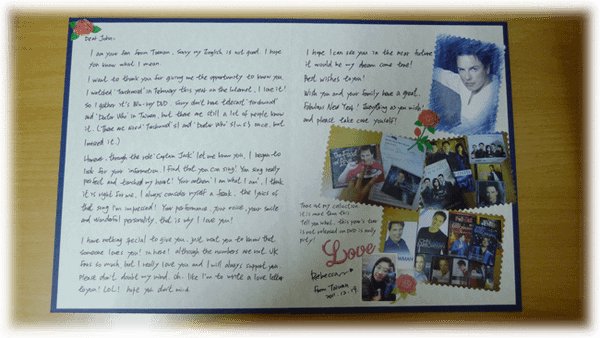 Dear John,
I am your fan from Taiwan, Sorry my English is not good. I hope
you know what I mean.
I want to thank you for giving me the opportunity to know you.
I watched "Torchwood" in February this year on the Internet, I love it!
So I gather it's Blu-ray DVD. Sorry don't have telecast "Torchwood"
and "Doctor Who" in Taiwan, but there are still a lot of people know
it. (There are aired "Torchwood" s1 and "Doctor Who" s1 once, but
I missed it.)
However, through the role "Captain Jack" let me know you, I began to
look for your information. I find that you can sing! You sing really
perfect and touched my heart! Your anthem "I am what I am", I think
it is right for me, I always consider myself a freak, the lyrics of
that song I'm impressed! Your performance, your voice, your smile
and wonderful personality, that is why I love you!
I have nothing special to give you, just want you to know that
someone loves you in here! although the numbers are not UK
fans so much, but I really love you and I will always support you.
Please don't doubt my mind. Oh, like I'm to write a love letter
to you! LoL! hope you don't mind.
I hope I can see you in the near future
it would be my dream come true!
Best wishes to you!
Wish you and your family have a great,
Fabulous New Year! Everything as you wish!
and please take care yourself!
These not my collection
it is more than this
Tell you what, this year's tour
is not released on DVD is only
pity!
Love
Rebecca
From Taiwan
2011.12.19.